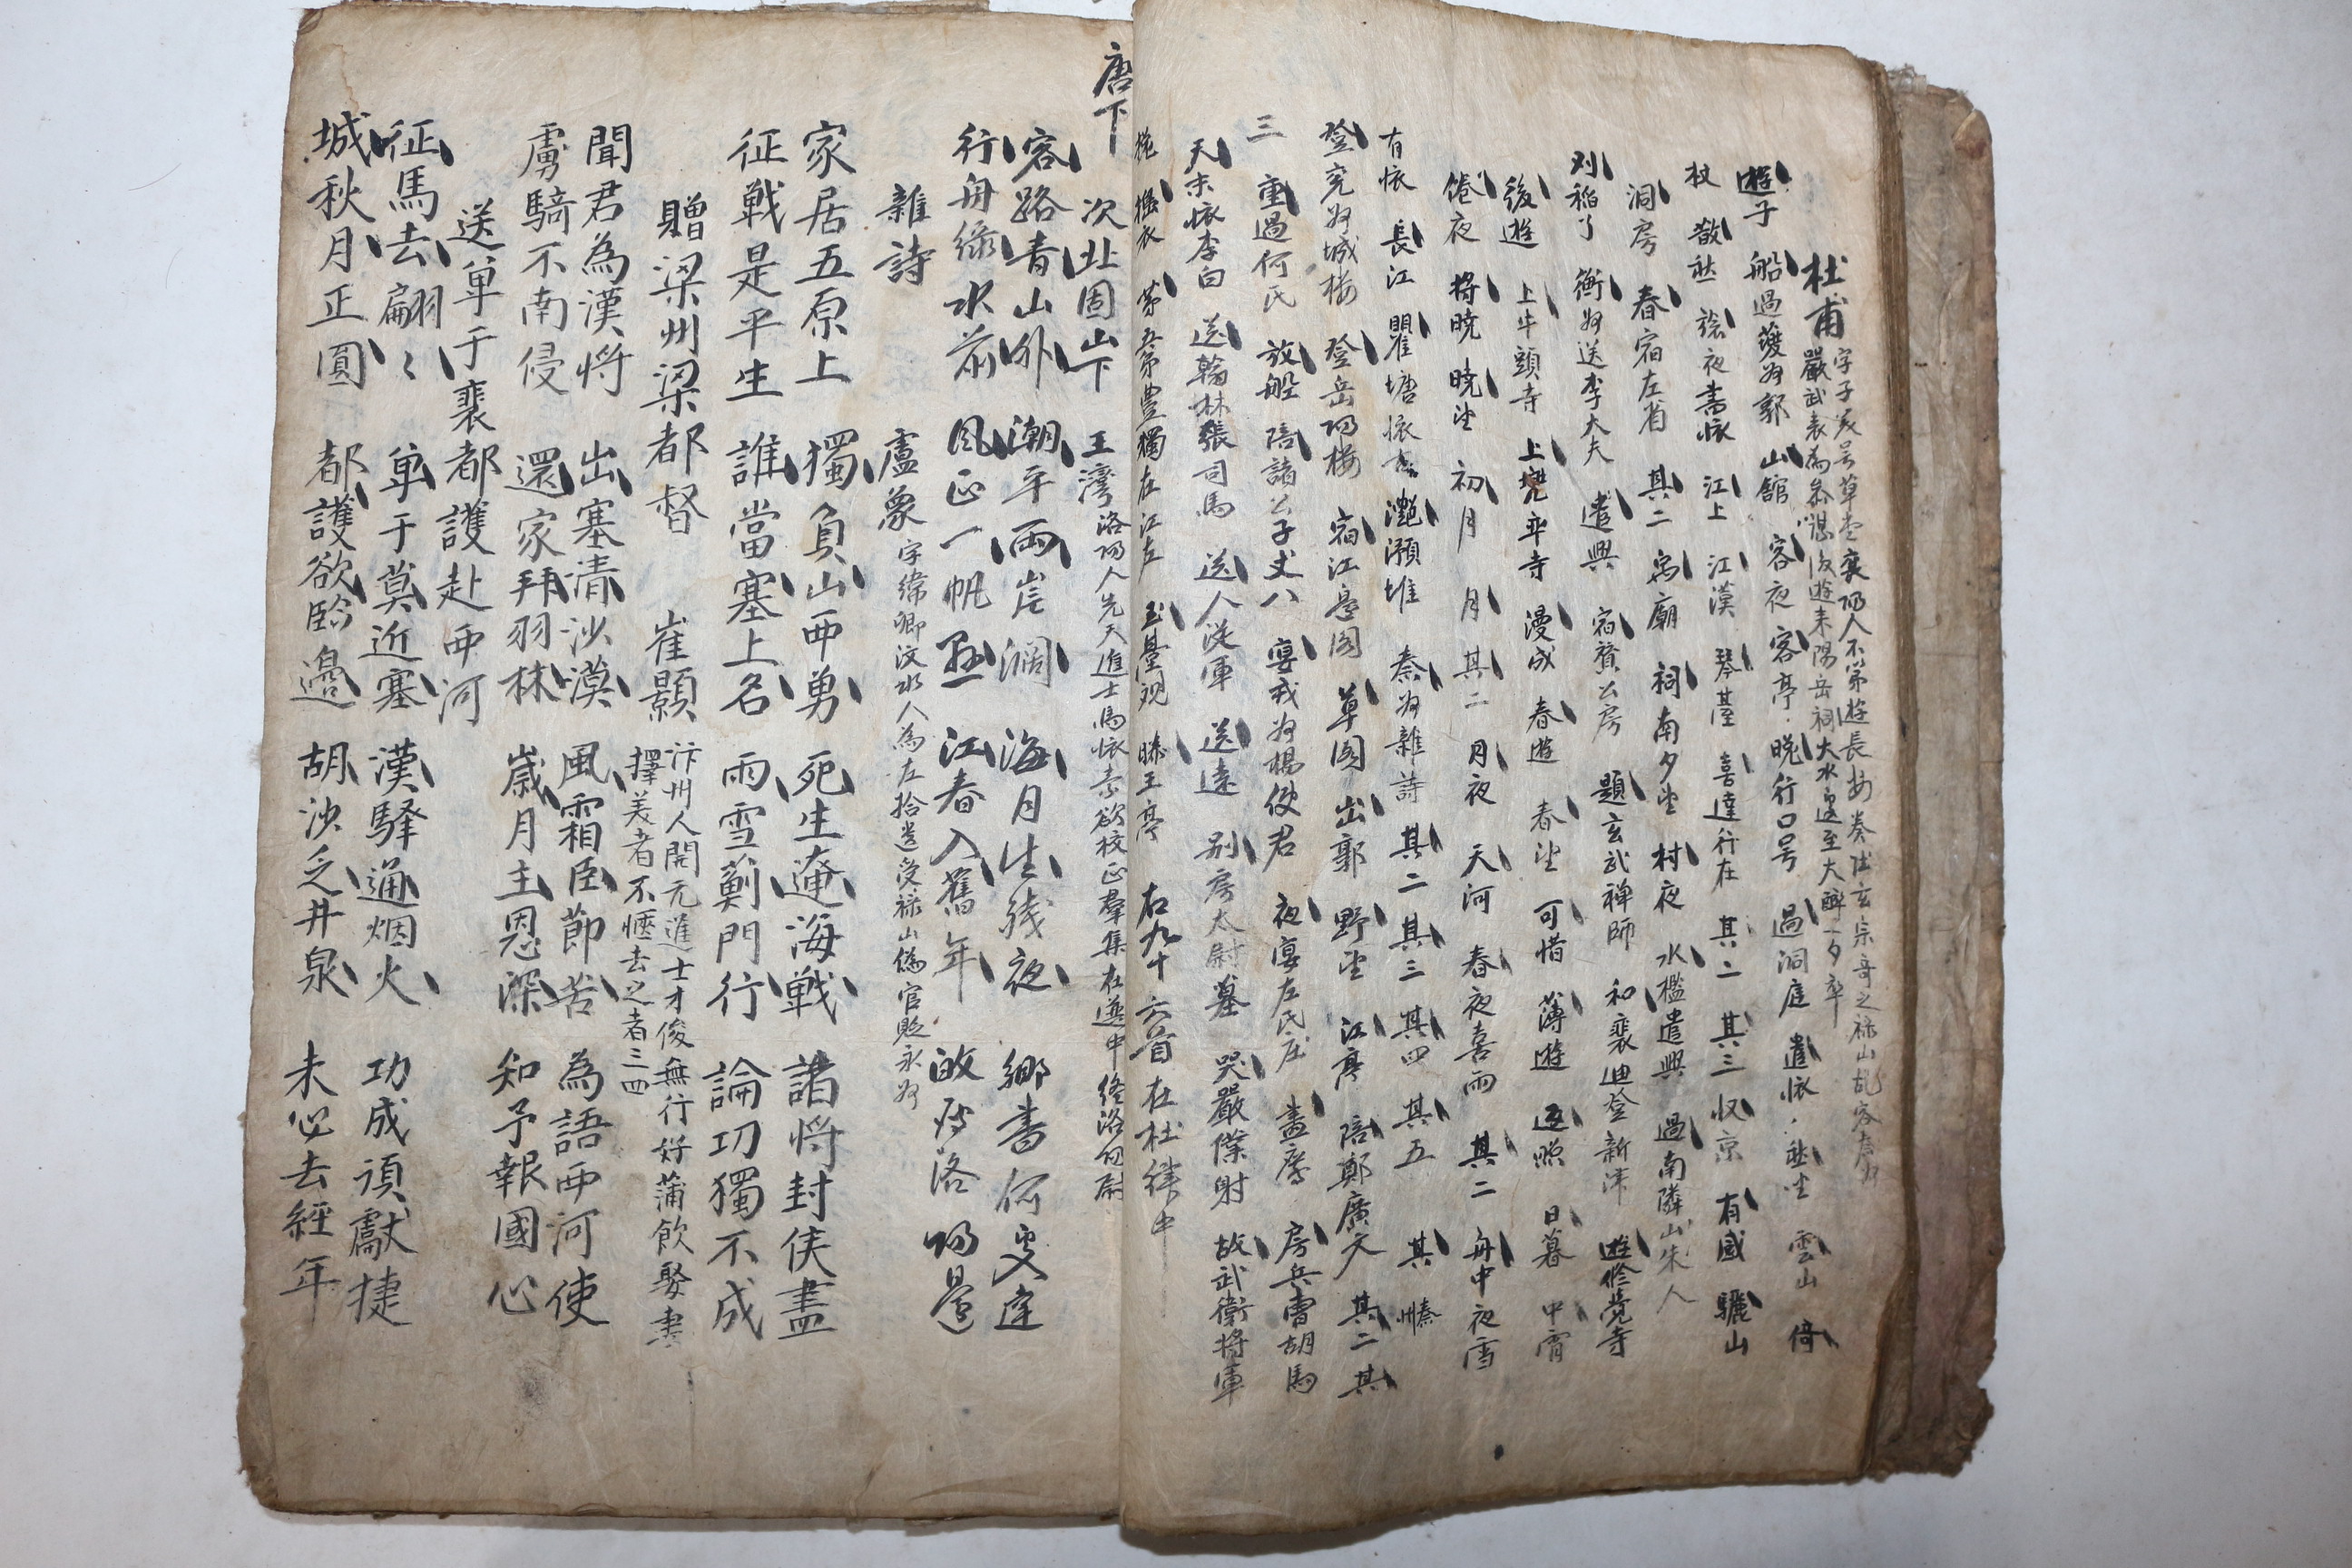 杜甫 字子美号草堂襄陽人不第遊長安奏賦玄宗奇之祿山乱客秦州
嚴武表為參謀後遊耒陽岳祠大水遽至大醉一夕卒
遊子 船過 郭 山館 客夜 客亭 晚行口号 過洞庭 遣怀 秋望 雲山 倚
杖 散愁 夜書懐 江上 江漢 琴臺 喜達行在 其二 其三 収京 有感 驪山
洞房 春宿左省 其二 禹廟 祠南夕望 村夜 水檻遣興 過南隣朱山人
刈稻了 衡州送李大夫 遣興 宿賛公房 題玄武禅師 和裴迪登新津 遊修覚寺
後遊 上牛頭寺 上兜率寺 漫成 春遊 春望 可惜 薄遊 返照 日暮 中宵
倦夜 将暁 暁望 初月 月 其二 月夜 天河 春夜喜雨 其二 舟中夜雪
有懐 長江 瞿塘懐古 灧澦堆 秦州雜詩 其二 其三 其四 其五 其
登兗州城楼 登岳陽楼 宿江邊阁 草阁 出郭 野望 江亭 陪鄭廣文 其二 其
三 重過何氏 放船 陪諸公子丈八 宴戎州楊使君 夜宴左氏庄 畫鷹 房兵曹胡馬
天末懐李白 送翰林張司馬 送人従軍 送遠 别房太尉墓 哭嚴僕射 故武衛将軍
挽 擣衣 第五弟豊獨在江左 玉臺观 滕王亭 右九十六首在杜律中
唐下 次北固山下 王灣 洛陽人先天進士馬怀素欲校正羣集在選中終洛陽尉
客路青山外 潮平兩岸濶 海月生残夜 鄉書何處達
行舟綠水前 風正一帆懸 江春入舊年 皈鴈洛陽邊
雜詩 盧象 字緯卿汶水人為左拾遺受祿山偽官貶永州
家居五原上 獨負山西勇 死生遼海戦 諸将封侯盡
征戦是平生 誰當塞上名 雨雪薊門行 論功獨不成
贈梁州梁都督 崔顥 汴州人開元進士才俊無行好蒲飲娶妻
擇美者不愜去之者三四
聞君為漢将 出塞清沙漠 風霜臣節苦 為語西河使
虜騎不南侵 還家拜羽林 歳月主恩深 知予報國心
送单于裴都護赴西河
征馬去翩〻 单于莫近塞 漢驛通烟火 功成須獻捷
城秋月正圓 都護欲臨邊 胡沙乏井泉 未必去經年